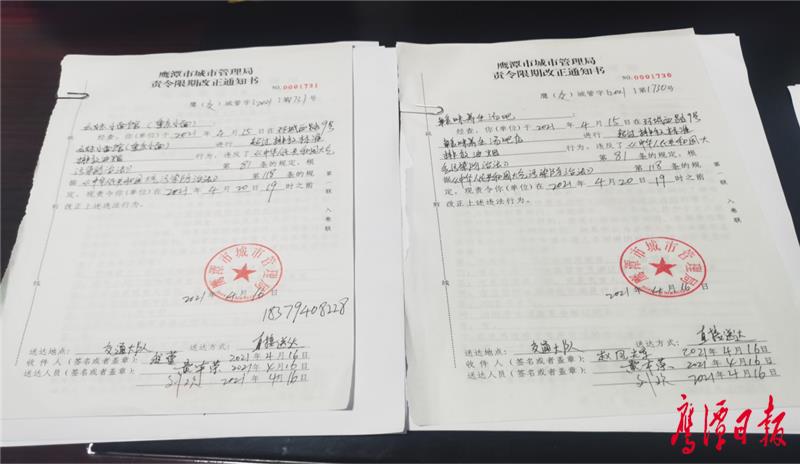 鹰潭市城市管理局
责令限期改正通知书
NO.0001731
鹰（ ）城管字[2021]第1731号
经查，你(单位)于2021年4月15日在环城西路9号
进行超过排放标准
排放油烟行为，违反了《中华人民共和国大气
污染防治法》第81条的规定，根
据《中华人民共和国大气污染防治法》第118条规
定，现责令你(单位)在2021年4月20日19时之前
改正上述违法行为。
第一联
入卷联
鹰潭市城市管理局
2021年4月16日
18379408228
送达地点：交通大队 送达方式：直接送达
收件人(签名或者盖章)： 2021年4月16日
送达人员(签名或者盖章)： 2021年4月16日
2021年4月16日
鹰潭市城市管理局
责令限期改正通知书
NO.0001730
鹰（ ）城管字[2021]第1730号
经查，你(单位)于2021年4月15日在环城西路9号
进行超过排放标准
排放油烟行为，违反了《中华人民共和国大
气污染防治法》第81条的规定，根
据《中华人民共和国大气污染防治法》第118条规
定，现责令你(单位)在2021年4月20日19时之前
改正上述违法行为。
第一联
入卷联
鹰潭市城市管理局
2021年4月16日
送达地点：交通大队 送达方式：直接送达
收件人(签名或者盖章)： 2021年4月16日
送达人员(签名或者盖章)： 2021年4月16日
2021年4月16日
鹰潭日报